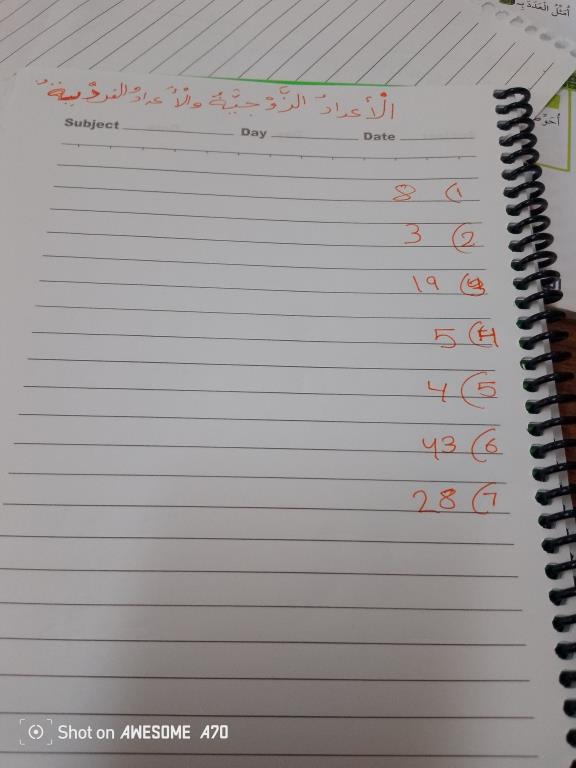 أُمَثِّلُ الْعَدَدَ بِـ
الْأَعدادُ الزَّوْجِيَّةُ والْأعدادُ الفرديةُ
Subject Day Date
1) 8
2) 3
3) 19
4) 5
5) 4
6) 43
7) 28
Shot on AWESOME A70